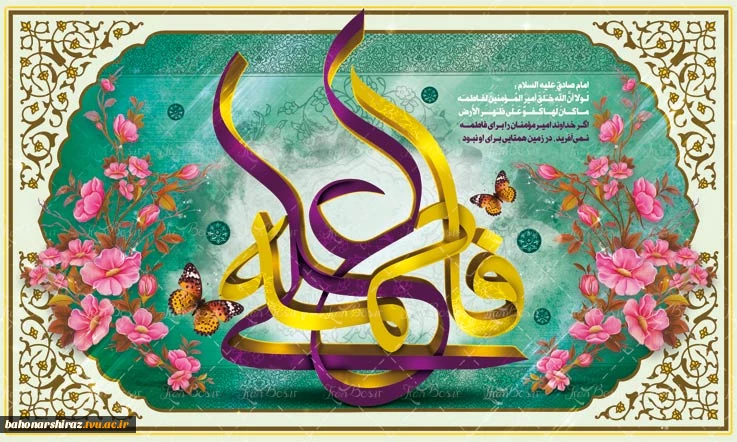 امام صادق علیه السلام :
لولا أنّ الله خلق أمیر المؤمنین لفاطمه
ماکان لها کفوٌ علی ظهر الأرض
اگر خداوند امیر مؤمنان را برای فاطمه
نمی آفرید . در زمین همتایی برای او نبود
علی
فاطمه
bahonarshiraz.tvu.ac.ir